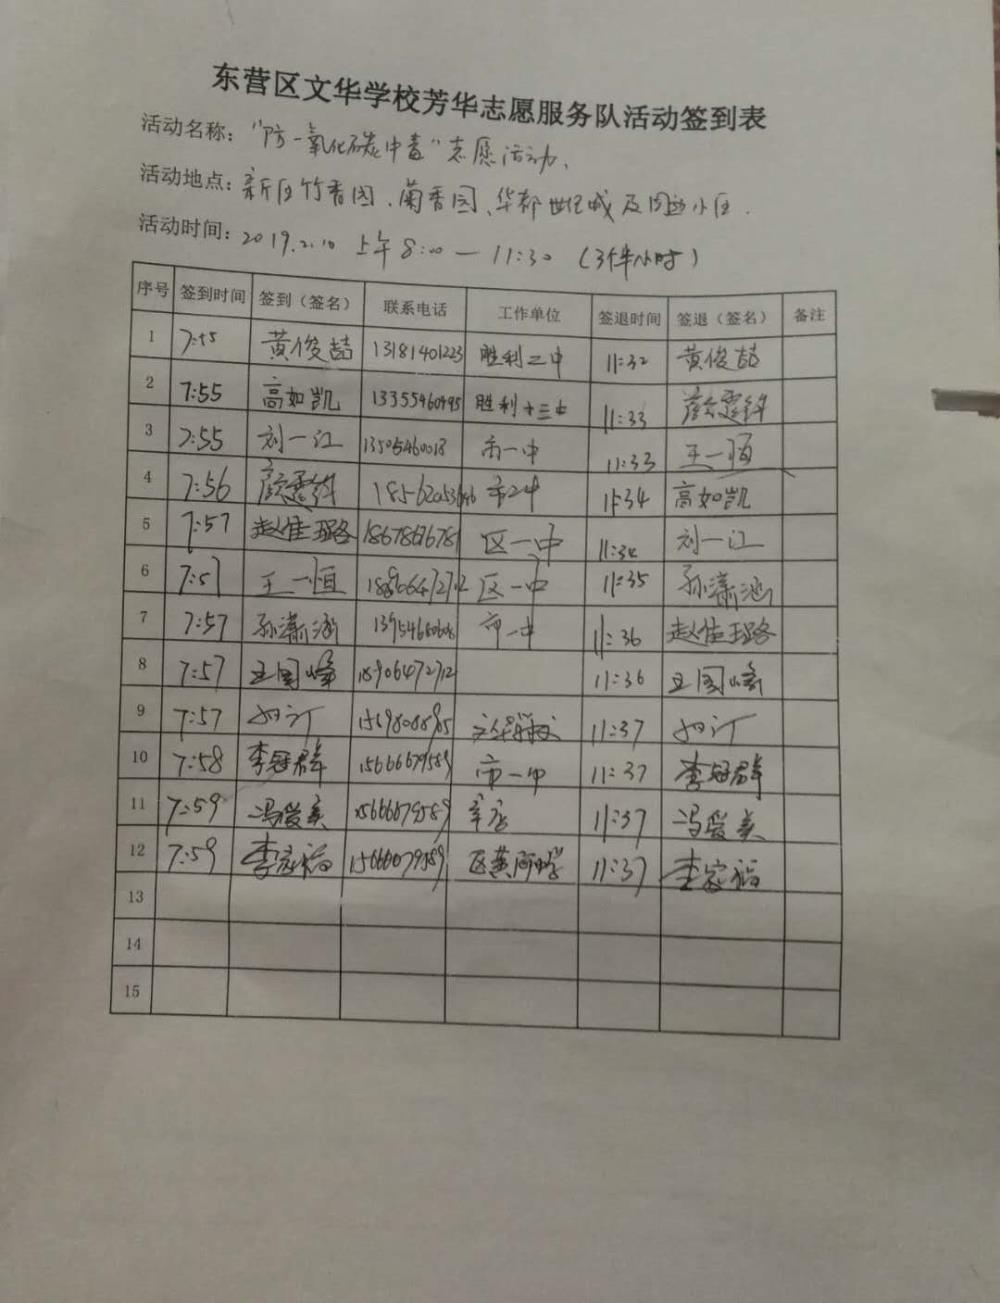 东营区文华学校芳华志愿服务队活动签到表
活动名称："防一氧化碳中毒"志愿活动、
活动地点：新区竹香园、菊香园、华都世纪城及周边小区．
活动时间：2019.2.10 上午 8:00 — 11:30 (3个半小时)
序号 签到时间 签到（签名） 联系电话 工作单位 签退时间 签退（签名） 备注
1 7:55 黄俊喆 13181401223 胜利二中 11:32 黄俊喆
2 7:55 高如凯 13355460495 胜利十三中 11:33
3 7:55 刘一江 13505460018 市一中 11:33 王一恒
4 7:56 市2中 11:34 高如凯
5 7:57 赵佳璐 区一中 11:34 刘一江
6 7:57 王一恒 区一中 11:35 孙潇涵
7 7:57 孙潇涵 市一中 11:36 赵佳璐
8 7:57 王国峰 18906472712 11:36 王国峰
9 7:57 文华学校 11:37
10 7:58 李冠群 15666679589 市一中 11:37 李冠群
11 7:59 冯爱美 15666679589 11:37 冯爱美
12 7:59 李家福 15666679589 区黄河中学 11:37 李家福
13
14
15